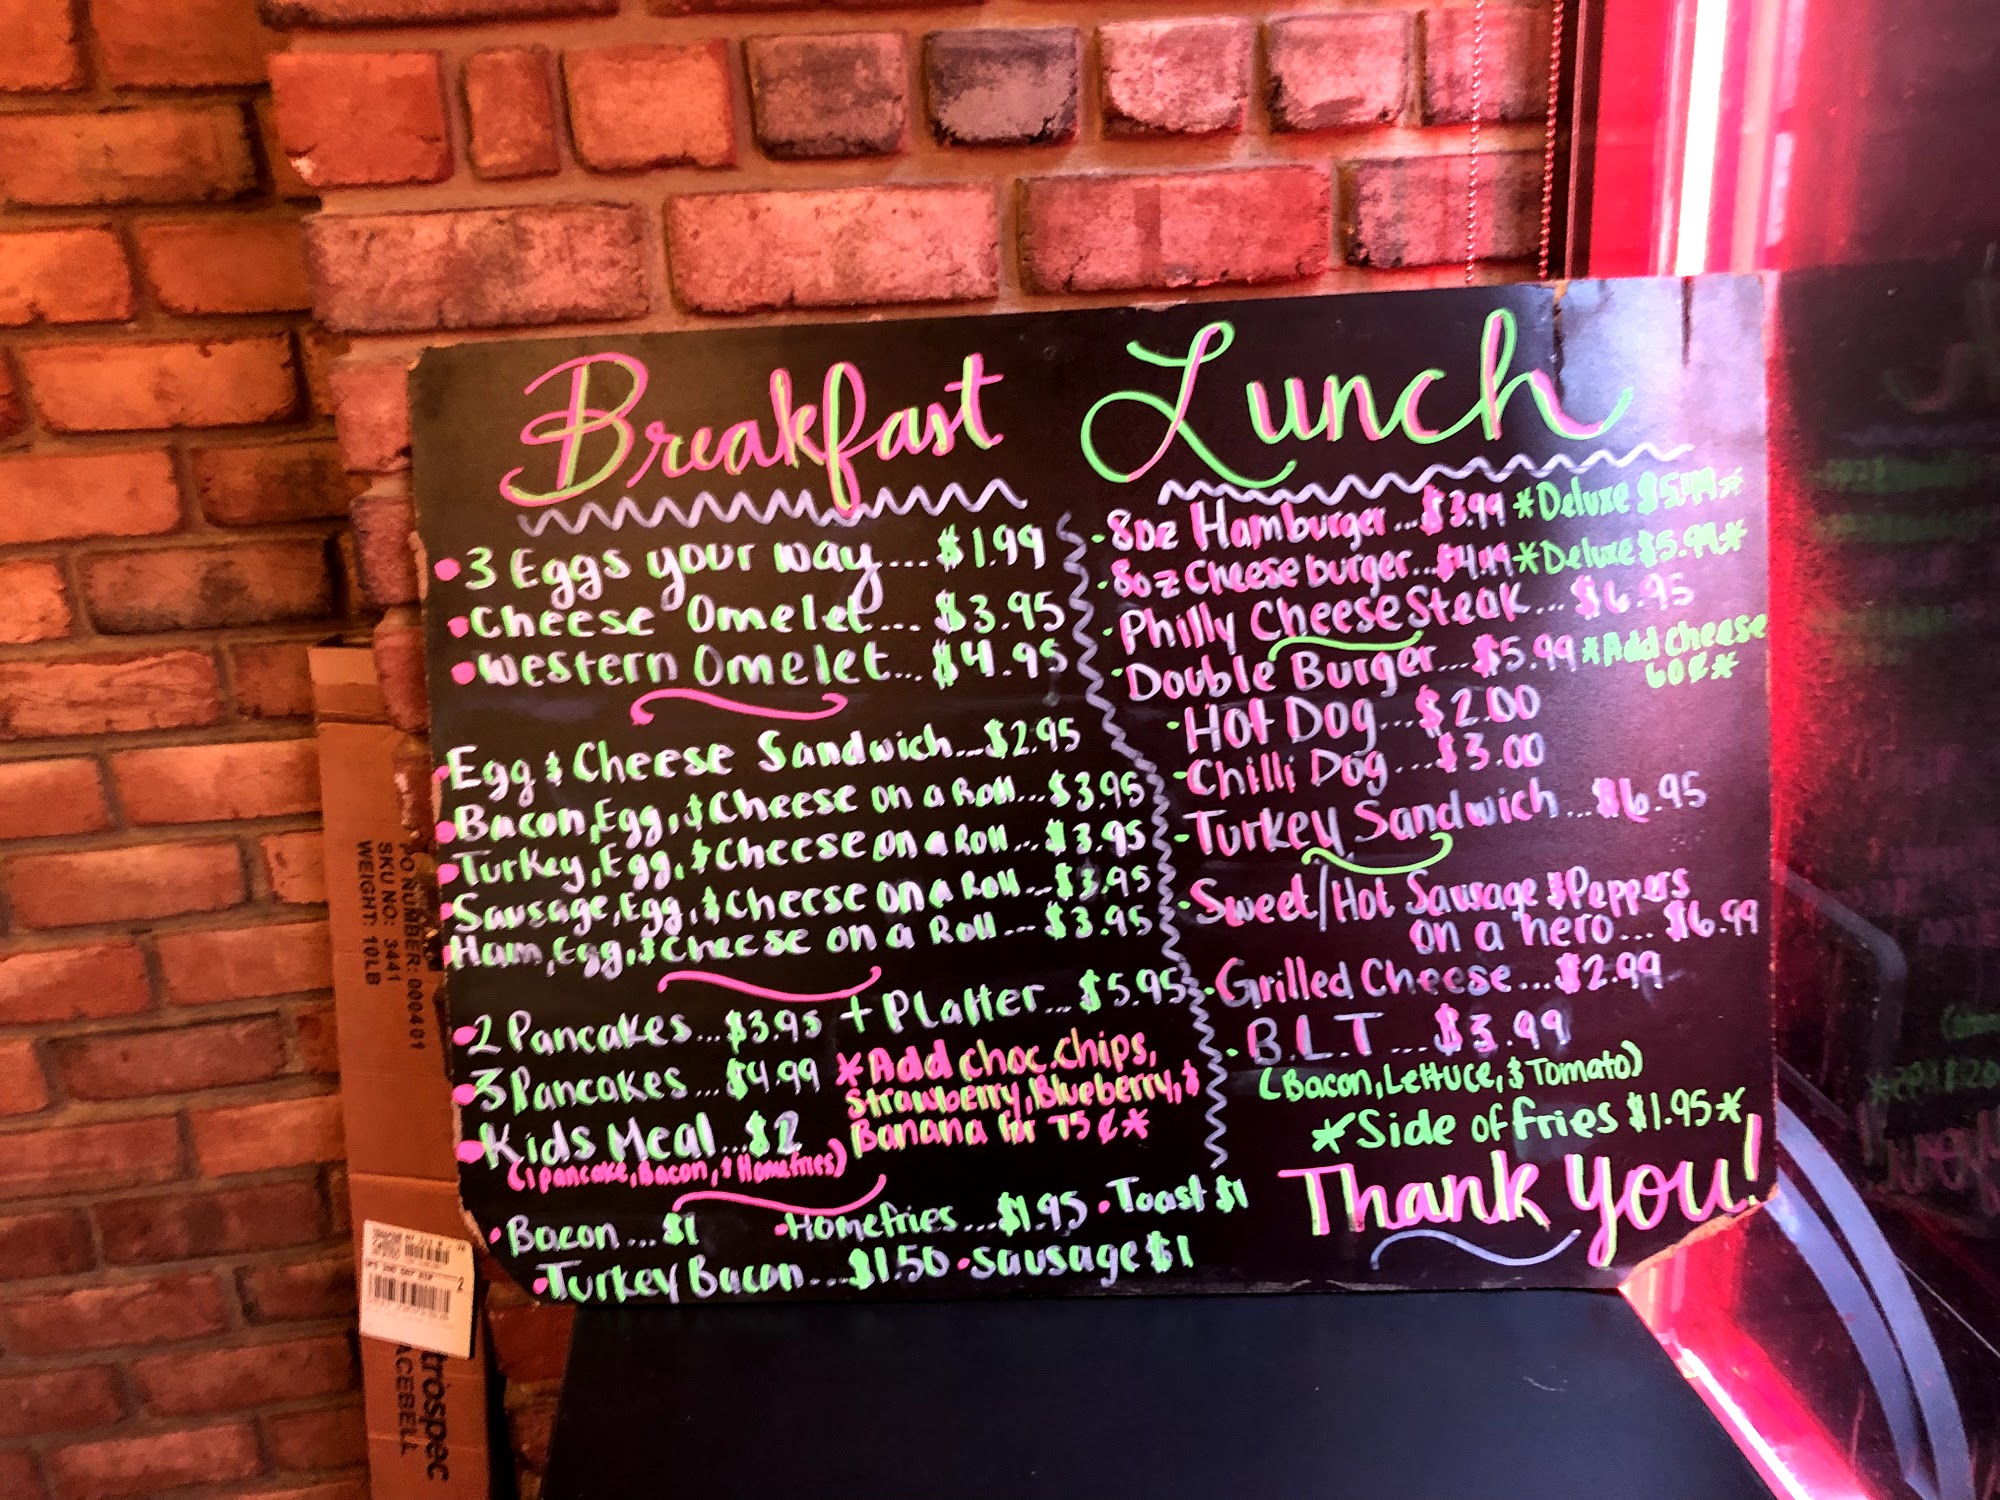 Breakfast
• 3 Eggs your way... $1.99
• Cheese Omelet... $3.95
• Western Omelet... $4.95
• Egg & Cheese Sandwich... $2.95
• Bacon, Egg, & Cheese on a Roll... $3.95
• Turkey, Egg, & Cheese on a Roll... $3.95
• Sausage, Egg, & Cheese on a Roll... $3.95
• Ham, Egg, & Cheese on a Roll... $3.95
• 2 Pancakes... $3.95 + Platter... $5.95
• 3 Pancakes... $4.99
*Add choc. chips,
Strawberry, Blueberry, &
Banana for 75¢*
• Kids Meal... $2
(1 pancake, Bacon, & Homefries)
• Bacon... $1 • Homefries... $1.95 • Toast $1
• Turkey Bacon... $1.50 • Sausage $1
Lunch
- 8oz Hamburger... $3.99 *Deluxe $5.49*
- 8oz Cheeseburger... $4.49 *Deluxe $5.99*
- Philly CheeseSteak... $6.95
- Double Burger... $5.99 *Add cheese
60¢*
- Hot Dog... $2.00
- Chilli Dog... $3.00
- Turkey Sandwich... $6.95
- Sweet/Hot Sausage & Peppers
on a hero... $6.99
- Grilled Cheese... $2.99
- B.L.T... $3.99
(Bacon, Lettuce, & Tomato)
*Side of fries $1.95*
Thank you!
PO NUMBER: 000401
SKU NO: 3441
WEIGHT: 10LB
2
trospec
ACEBELL